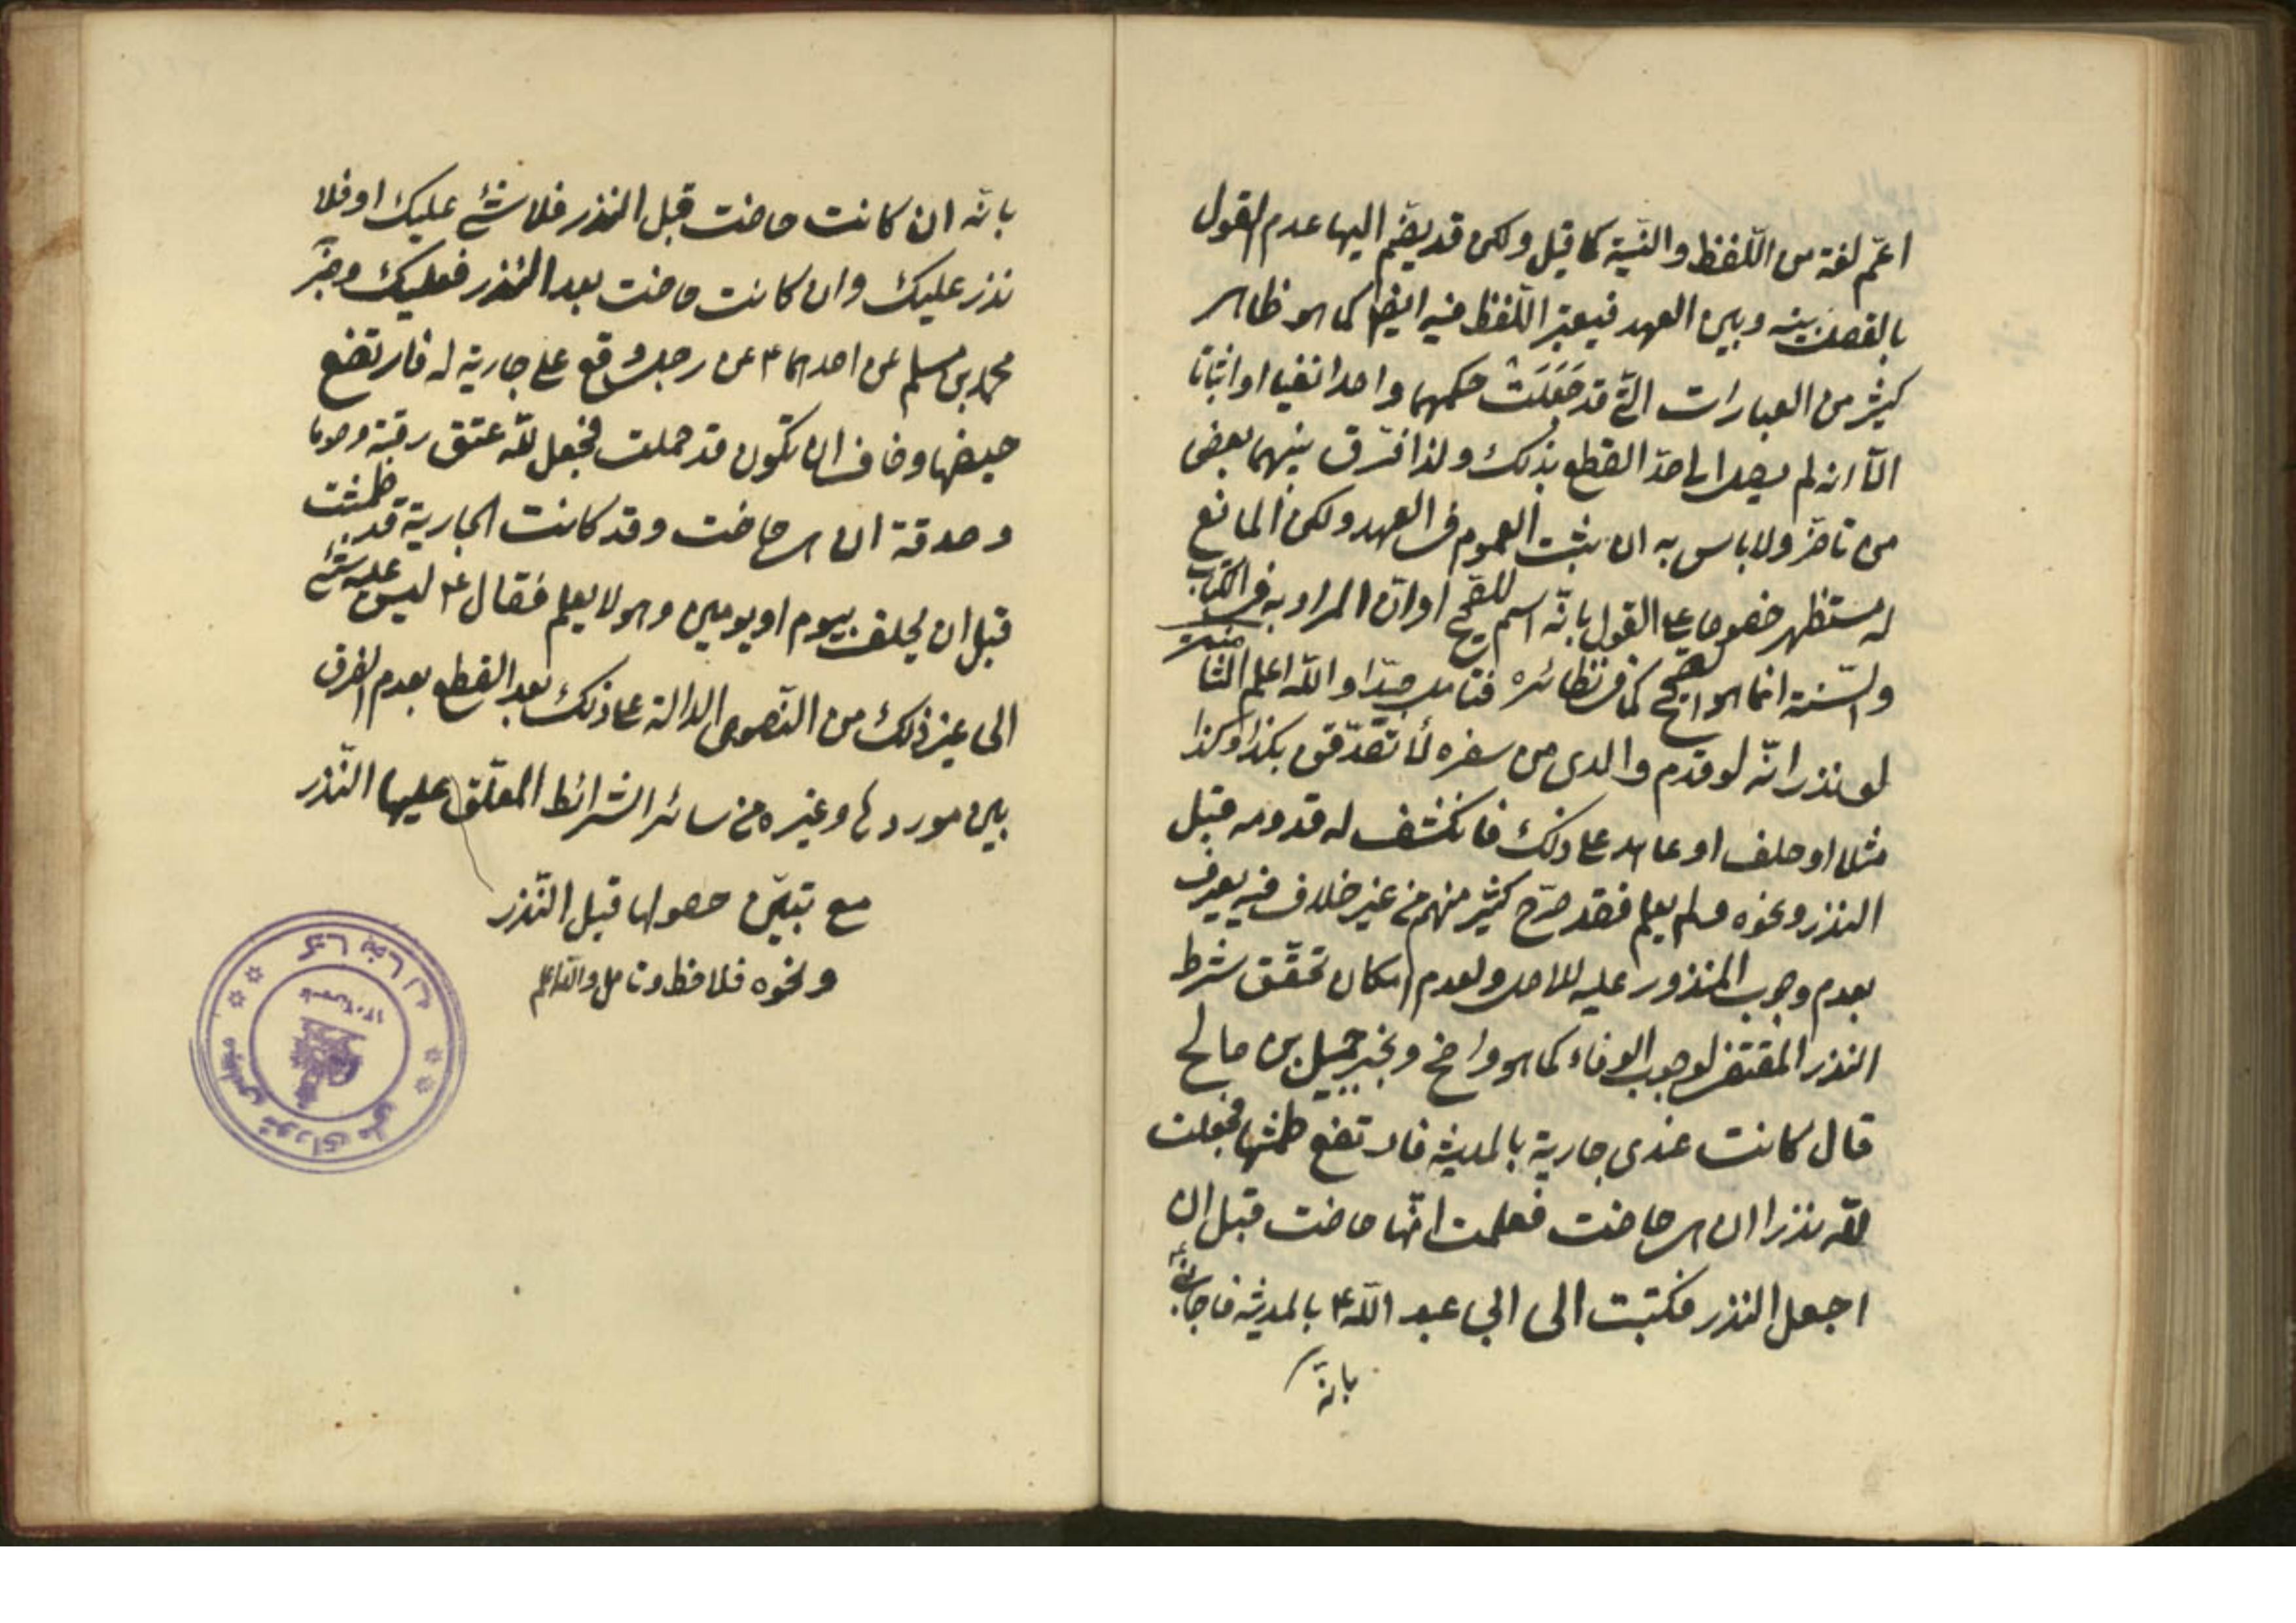 اعمّ لغة من اللّفظ والنيّة كما قيل ولكن قد يضمّ اليها عدم القول
بالفصل بينه وبين العهد فيعتبر اللّفظ فيه ايضا كما هو ظاهر
كثير من العبارات الّتى قد جَعَلَتْ حكمهما واحدا نفيا او اثباتا
الّا انه لم يصل الى حدّ القطع بذلك ولذا فرّق بينهما بعض
من تاخّر ولا باس به ان ثبت العموم فى العهد ولكن المانع
له مستظهر خصوصا على القول بانّه اسم للصّحيح او انّ المراد به فى الكتاب
والسّنة انما هو الصّحيح كما فى نظائره فتامل جدّا واللّه اعلم
لو نذر انّه لو قدم والدى من سفره لأتصدّقن بكذا وكذا
مثلا او حلف او عاهد على ذلك فانكشف له قدومه قبل
النذر ونحوه ولم يعلم فقد صرّح كثير منهم من غير خلاف فيه يعرف
بعدم وجوب المنذور عليه للاصل ولعدم امكان تحقّق شرط
النذر المقتضى لوجوب الوفاء كما هو واضح وبخبر جميل بن صالح
قال كانت عندى جارية بالمدينة فارتفع طمثها فجعلت
للّه نذرا ان هى حاضت فعلمت انّها حاضت قبل ان
اجعل النذر فكتبت الى ابى عبد اللّه ع بالمدينة فاجاب
بانّه
بانّه ان كانت حاضت قبل النذر فلا شئ عليك او فلا
نذر عليك وان كانت حاضت بعد النذر فعليك وخبر
محمد بن مسلم عن احدهما ع عن رجل وقع على جارية له فارتفع
حيضها وخاف ان تكون قد حملت فجعل للّه عتق رقبة وصوما
وصدقة ان هى حاضت وقد كانت الجارية قد طمثت
قبل ان يحلف بيوم او يومين وهو لا يعلم فقال ع ليس عليه شئ
الى غير ذلك من النّصوص الدالة على ذلك بعد القطع بعدم الفرق
بين موردها وغيره من سائر الشرائط المعلّق عليها النّذر
مع تبيّن حصولها قبل النّذر
ونحوه فلاحظ وتامل واللّه اعلم
كتابخانه
مجلس شوراى ملى